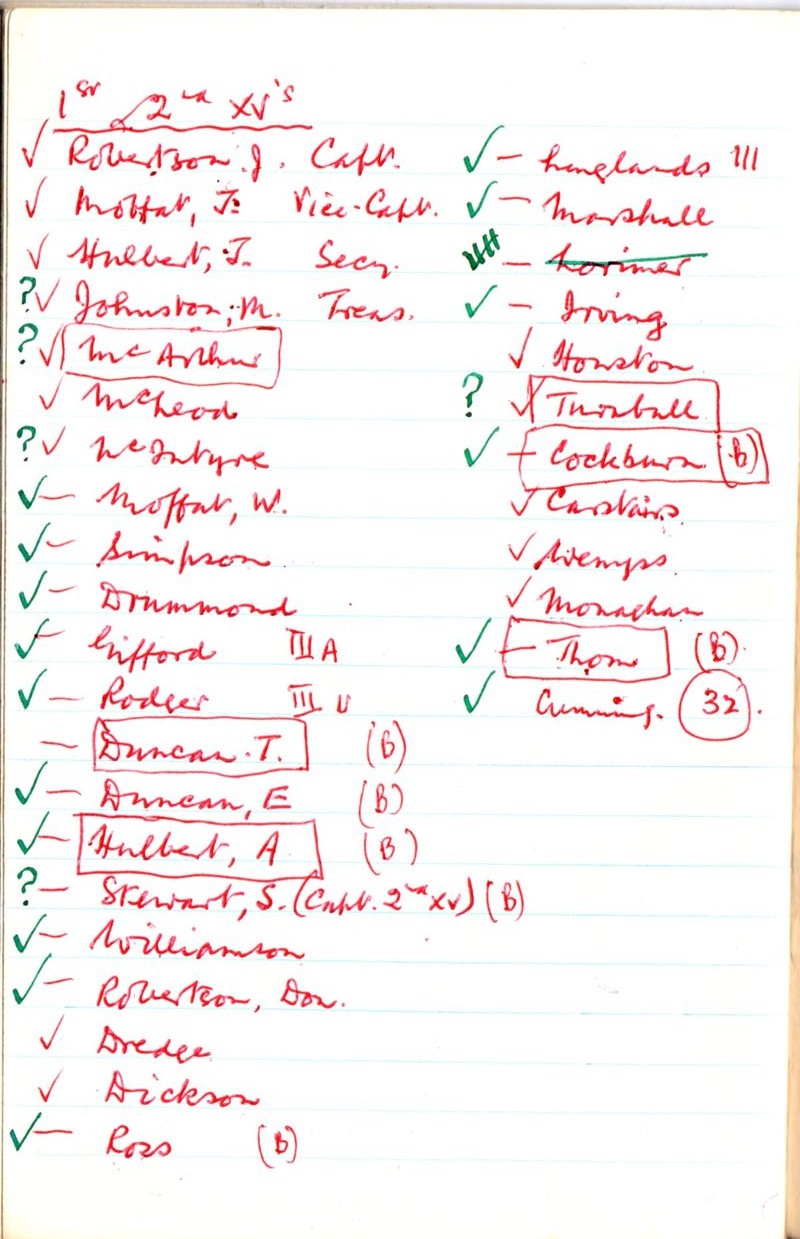 1st & 2nd XV's
✓ Robertson J. Capt.
✓ Moffat, J. Vice-Capt.
✓ Hulbert, J. Secy.
?✓ Johnston, M. Treas.
?✓ McArthur
✓ McLeod
?✓ McIntyre
✓— Moffat, W.
✓— Simpson
✓— Drummond
✓— Gifford III A
✓— Rodger III U
— Duncan. T. (B)
✓— Duncan, E (B)
✓— Hulbert, A (B)
?— Stewart, S. (Capt. 2nd XV) (B)
✓— Williamson
✓— Robertson, Don.
✓ Dredge
✓ Dickson
✓— Ross (B)
✓— Langlands III
✓— Marshall
— Lorimer
✓— Irving
✓ Houston
?✓ Turnbull
✓— Cockburn (B)
✓ Carstairs
✓ Wemyss
✓ Monaghan
✓— Thom (B)
✓ Cumming. 32.